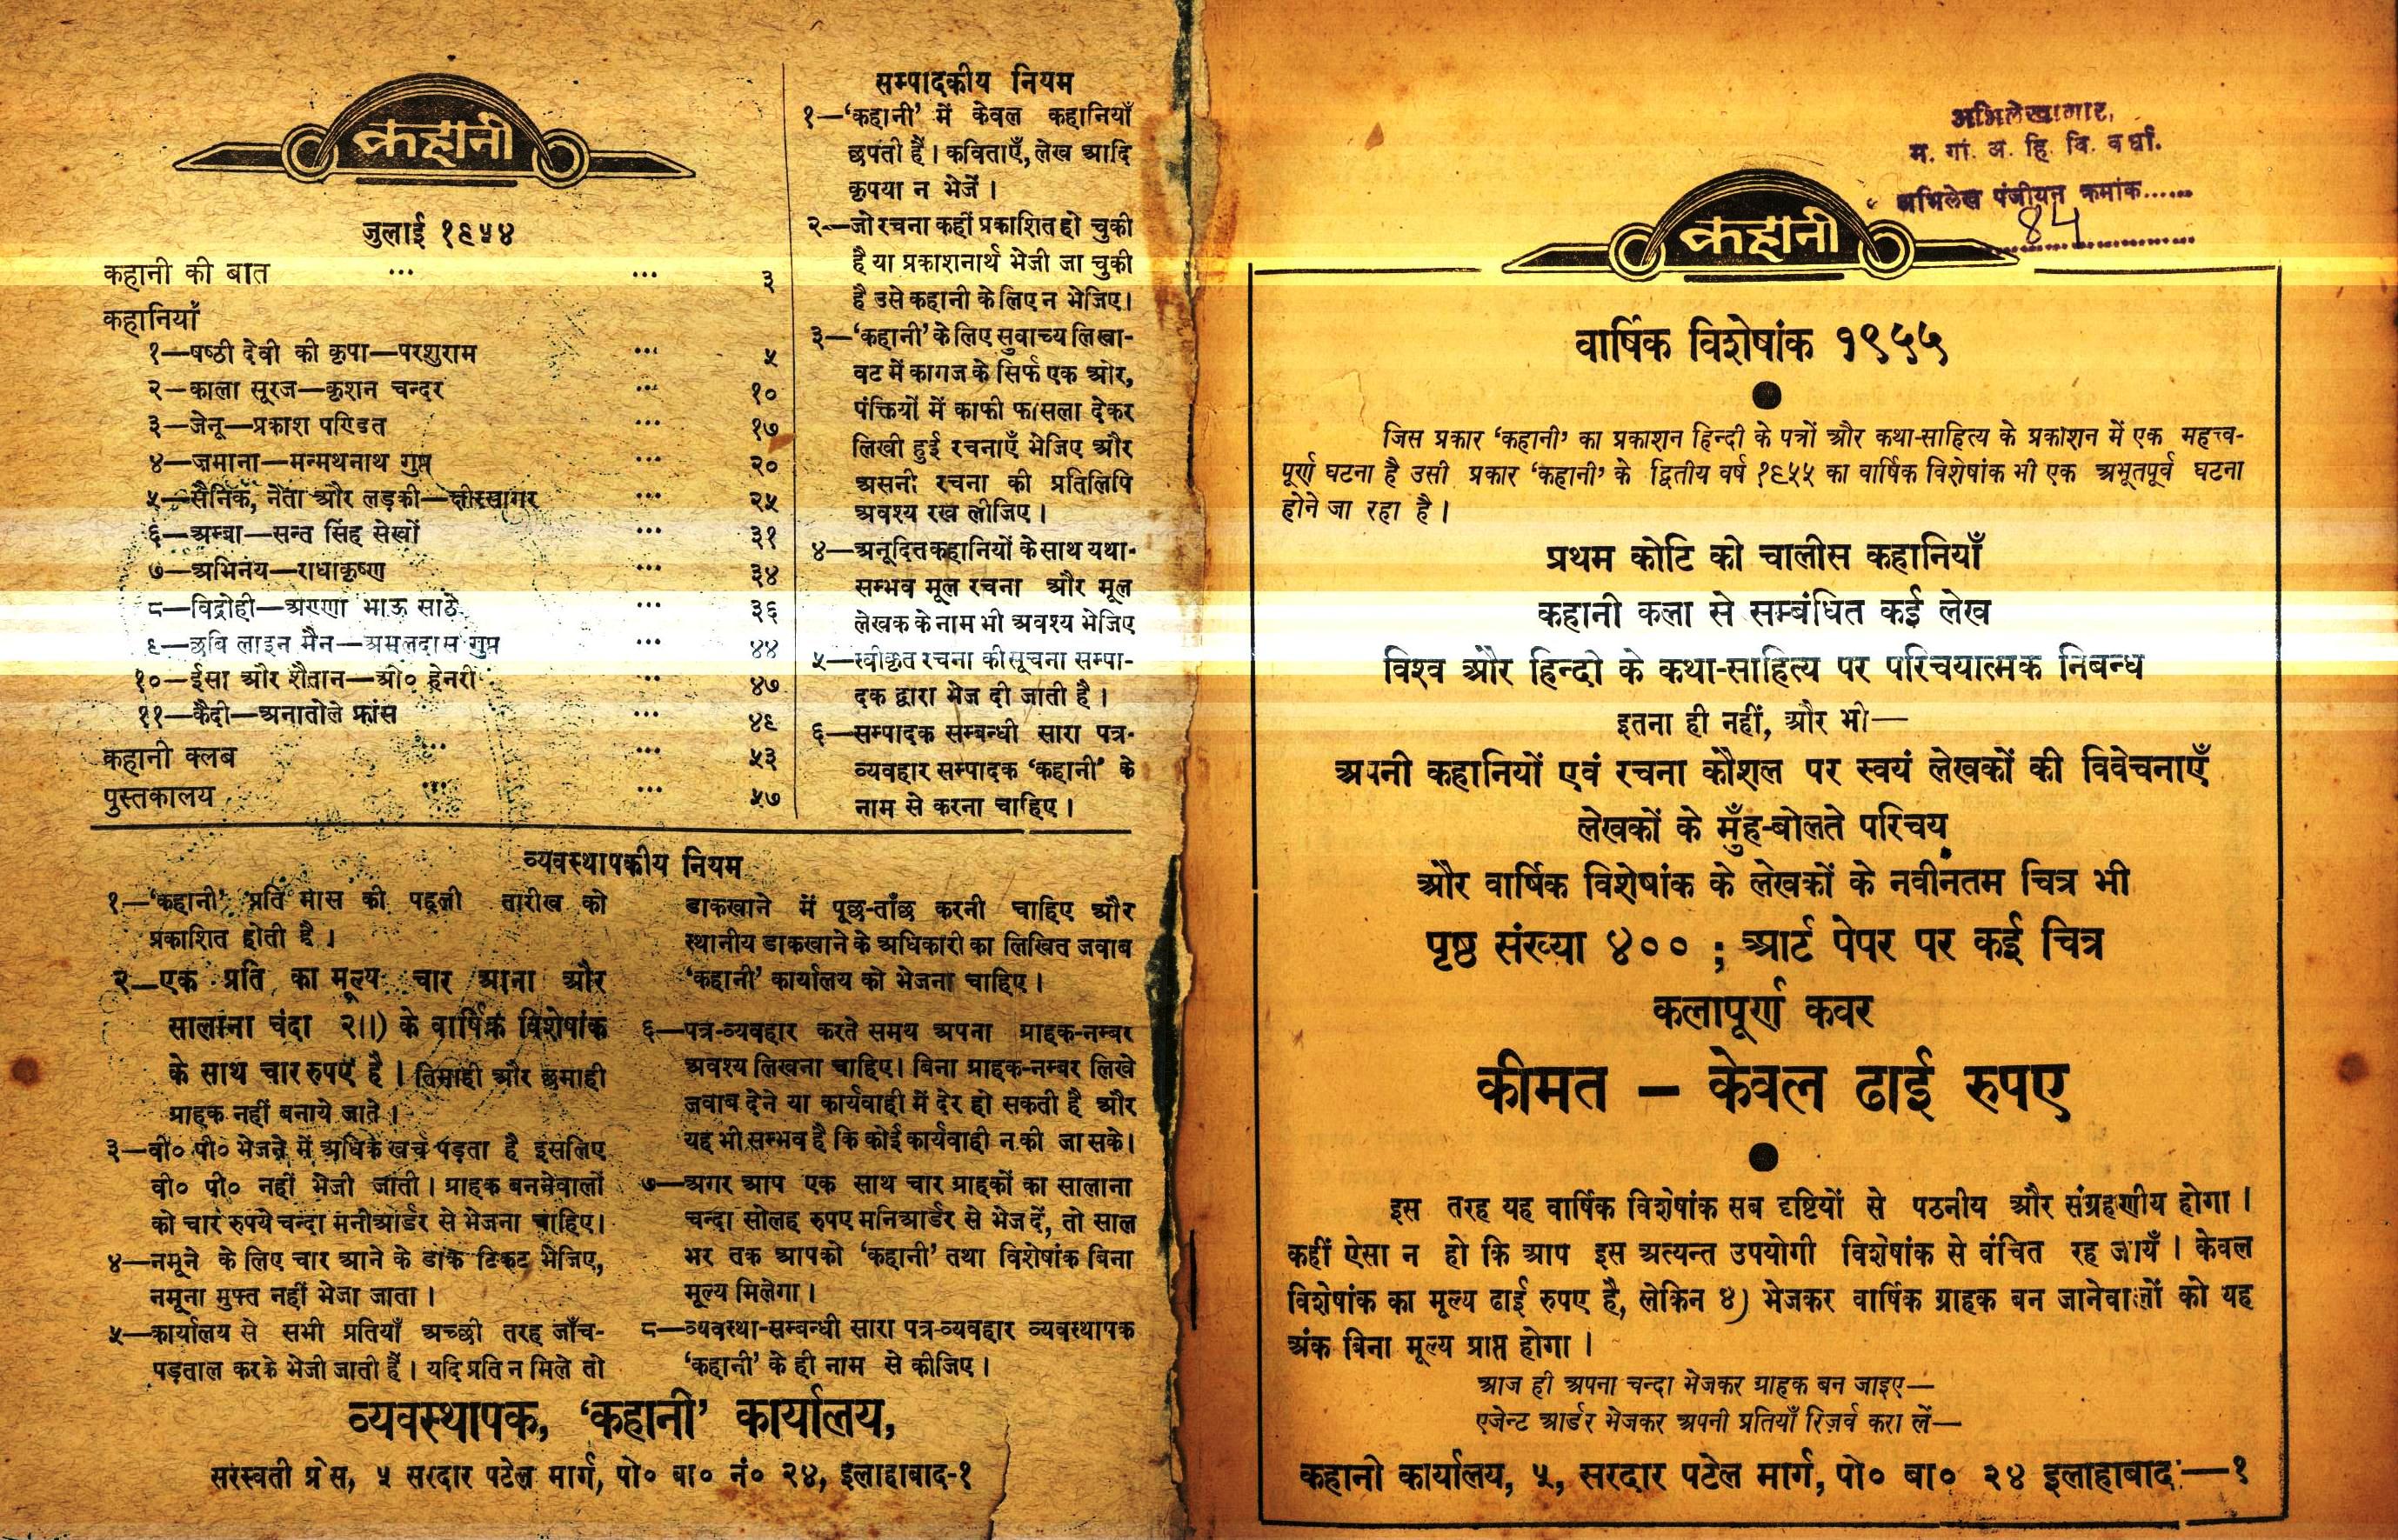 कहानी
जुलाई १९५४
कहानी की बात ... ... ३
कहानियाँ
१—षष्ठी देवी की कृपा—परशुराम ... ५
२—काला सूरज—कृशन चन्दर ... १०
३—जेनू—प्रकाश पण्डित ... १७
४—जमाना—मन्मथनाथ गुप्त ... २०
५—सैनिक, नेता और लड़की—क्षीरसागर ... २५
६—अम्बा—सन्त सिंह सेखों ... ३१
७—अभिनय—राधाकृष्ण ... ३४
८—विद्रोही—अण्णा भाऊ साठे ... ३६
९—छबि लाइन मैन—अमलदास गुप्त ... ४४
१०—ईसा और शैतान—ओ० हेनरी ... ४७
११—कैदी—अनातोले फ्रांस ... ४९
कहानी क्लब ... ... ५३
पुस्तकालय ... ... ५७
सम्पादकीय नियम
१—‘कहानी’ में केवल कहानियाँ
छपती हैं। कविताएँ, लेख आदि
कृपया न भेजें।
२—जो रचना कहीं प्रकाशित हो चुकी
है या प्रकाशनार्थ भेजी जा चुकी
है उसे कहानी के लिए न भेजिए।
३—‘कहानी’ के लिए सुवाच्य लिखा-
वट में कागज के सिर्फ एक ओर,
पंक्तियों में काफी फासला देकर
लिखी हुई रचनाएँ भेजिए और
असनी रचना की प्रतिलिपि
अवश्य रख लीजिए।
४—अनूदित कहानियों के साथ यथा-
सम्भव मूल रचना और मूल
लेखक के नाम भी अवश्य भेजिए
५—स्वीकृत रचना की सूचना सम्पा-
दक द्वारा भेज दी जाती है।
६—सम्पादक सम्बन्धी सारा पत्र-
व्यवहार सम्पादक ‘कहानी’ के
नाम से करना चाहिए।
व्यवस्थापकीय नियम
१—‘कहानी’ प्रति मास की पहली तारीख को
प्रकाशित होती है।
२—एक प्रति का मूल्य चार आना और
सालाना चंदा २॥) के वार्षिक विशेषांक
के साथ चार रुपए है। तिमाही और छमाही
ग्राहक नहीं बनाये जाते।
३—वी० पी० भेजने में अधिक खर्च पड़ता है इसलिए
वी० पी० नहीं भेजी जाती। ग्राहक बननेवालों
को चार रुपये चन्दा मनीआर्डर से भेजना चाहिए।
४—नमूने के लिए चार आने के डाक टिकट भेजिए,
नमूना मुफ्त नहीं भेजा जाता।
५—कार्यालय से सभी प्रतियाँ अच्छी तरह जाँच-
पड़ताल करके भेजी जाती हैं। यदि प्रति न मिले तो
डाकखाने में पूछ-ताँछ करनी चाहिए और
स्थानीय डाकखाने के अधिकारी का लिखित जवाब
‘कहानी’ कार्यालय को भेजना चाहिए।
६—पत्र-व्यवहार करते समय अपना ग्राहक-नम्बर
अवश्य लिखना चाहिए। बिना ग्राहक-नम्बर लिखे
जवाब देने या कार्यवाही में देर हो सकती है और
यह भी सम्भव है कि कोई कार्यवाही न की जा सके।
७—अगर आप एक साथ चार ग्राहकों का सालाना
चन्दा सोलह रुपए मनिआर्डर से भेज दें, तो साल
भर तक आपको ‘कहानी’ तथा विशेषांक बिना
मूल्य मिलेगा।
८—व्यवस्था-सम्बन्धी सारा पत्र-व्यवहार व्यवस्थापक
‘कहानी’ के ही नाम से कीजिए।
व्यवस्थापक, ‘कहानी’ कार्यालय,
सरस्वती प्रेस, ५ सरदार पटेल मार्ग, पो० बा० नं० २४, इलाहाबाद-१
अभिलेखागार,
म. गां. अं. हि. वि. वर्धा.
अभिलेख पंजीयन क्रमांक......
84
कहानी
वार्षिक विशेषांक १९५५
जिस प्रकार ‘कहानी’ का प्रकाशन हिन्दी के पत्रों और कथा-साहित्य के प्रकाशन में एक महत्त्व-
पूर्ण घटना है उसी प्रकार ‘कहानी’ के द्वितीय वर्ष १९५५ का वार्षिक विशेषांक भी एक अभूतपूर्व घटना
होने जा रहा है।
प्रथम कोटि की चालीस कहानियाँ
कहानी कला से सम्बंधित कई लेख
विश्व और हिन्दी के कथा-साहित्य पर परिचयात्मक निबन्ध
इतना ही नहीं, और भी—
अपनी कहानियों एवं रचना कौशल पर स्वयं लेखकों की विवेचनाएँ
लेखकों के मुँह-बोलते परिचय
और वार्षिक विशेषांक के लेखकों के नवीनतम चित्र भी
पृष्ठ संख्या ४०० ; आर्ट पेपर पर कई चित्र
कलापूर्ण कवर
कीमत – केवल ढाई रुपए
इस तरह यह वार्षिक विशेषांक सब दृष्टियों से पठनीय और संग्रहणीय होगा।
कहीं ऐसा न हो कि आप इस अत्यन्त उपयोगी विशेषांक से वंचित रह जायँ। केवल
विशेषांक का मूल्य ढाई रुपए है, लेकिन ४) भेजकर वार्षिक ग्राहक बन जानेवालों को यह
अंक बिना मूल्य प्राप्त होगा।
आज ही अपना चन्दा भेजकर ग्राहक बन जाइए—
एजेन्ट आर्डर भेजकर अपनी प्रतियाँ रिज़र्व करा लें—
कहानी कार्यालय, ५, सरदार पटेल मार्ग, पो० बा० २४ इलाहाबाद:—१